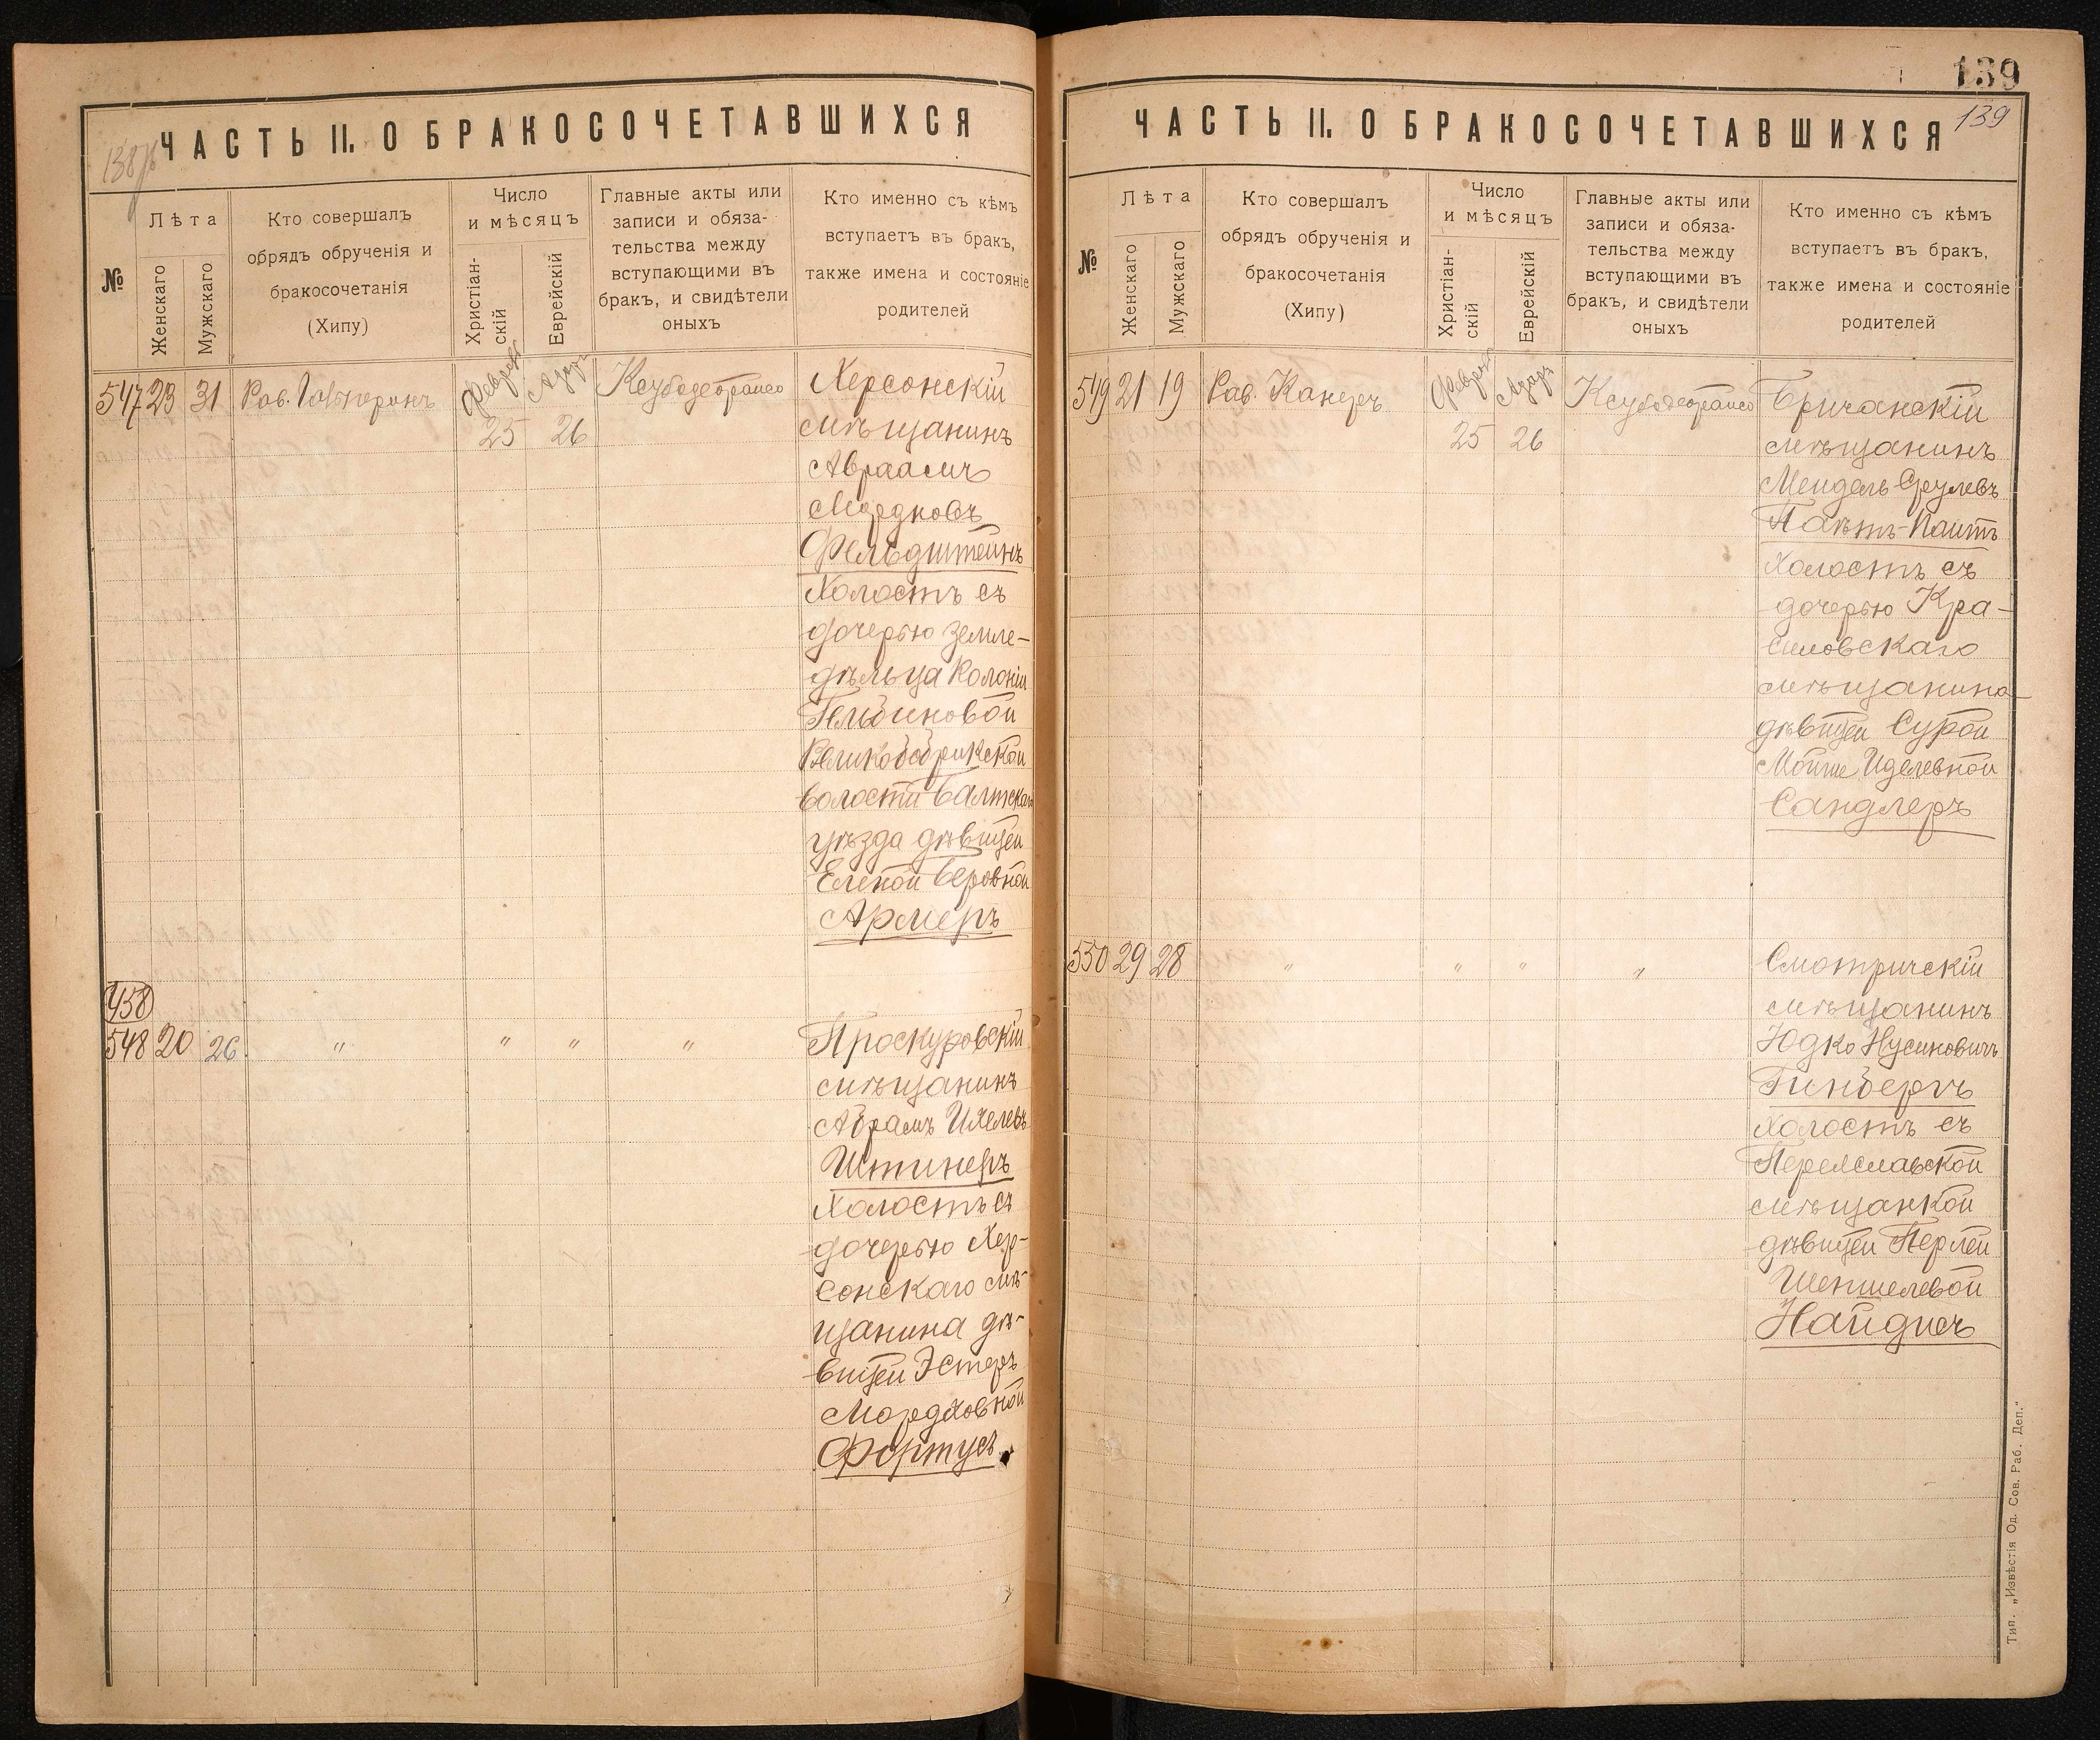 138 об
ЧАСТЬ II. О БРАКОСОЧЕТАВШИХСЯ
№
Лѣта
Женскаго
Мужскаго
Кто совершалъ
обрядъ обрученія и
бракосочетанія
(Хипу)
Число
и мѣсяцъ
Христіан-
скій
Еврейскій
Главные акты или
записи и обяза-
тельства между
вступающими въ
бракъ, и свидѣтели
оныхъ
Кто именно съ кѣмъ
вступаетъ въ бракъ,
также имена и состояніе
родителей
547 23 31 Рав. Февраля Адаръ Херсонскій
25 26 мѣщанинъ
Авраамъ
Мордковъ
Фельдштейнъ
Холостъ съ
дочерью земле-
дѣльца Колоніи
волости Балтскаго
уѣзда дѣвицей
Еленой Беровной
Армеръ
458
548 20 26 " " " " Проскуровскій
мѣщанинъ
Абрамъ
Штинеръ
Холостъ съ
дочерью Хер-
сонскаго мѣ-
щанина дѣ-
вицей Эстеръ
Мордховной
Фортусъ.
139
ЧАСТЬ II. О БРАКОСОЧЕТАВШИХСЯ
139
№
Лѣта
Женскаго
Мужскаго
Кто совершалъ
обрядъ обрученія и
бракосочетанія
(Хипу)
Число
и мѣсяцъ
Христіан-
скій
Еврейскій
Главные акты или
записи и обяза-
тельства между
вступающими въ
бракъ, и свидѣтели
оныхъ
Кто именно съ кѣмъ
вступаетъ въ бракъ,
также имена и состояніе
родителей
549 21 19 Рав. Канеръ Февраля Адаръ Бричанскій
25 26 мѣщанинъ
Мендель Срулевъ
Холостъ съ
дочерью Кра-
силовскаго
мѣщанина
дѣвицей Сурой
Мойше Иделевной
Сандлеръ
550 29 28 " " " " Смотричскій
мѣщанинъ
Юдко Нусиновичъ
Гинбергъ
Холостъ съ
Переяславской
мѣщанкой
дѣвицей Перлей
Шепшелевой
Найдисъ
Тип. „Извѣстія Од. Сов. Раб. Деп."